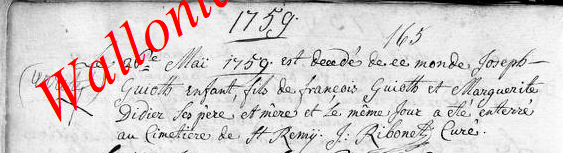 1759.
165
Wallonie
Mai 1759 est decedé de ce monde Joseph
Guioth enfant, fils de francois Guioth et Marguerite
Didier Ses père et mère et le même Jour a eté enterré
au Cimetiere de St Remij. J: Ribonet Curé.